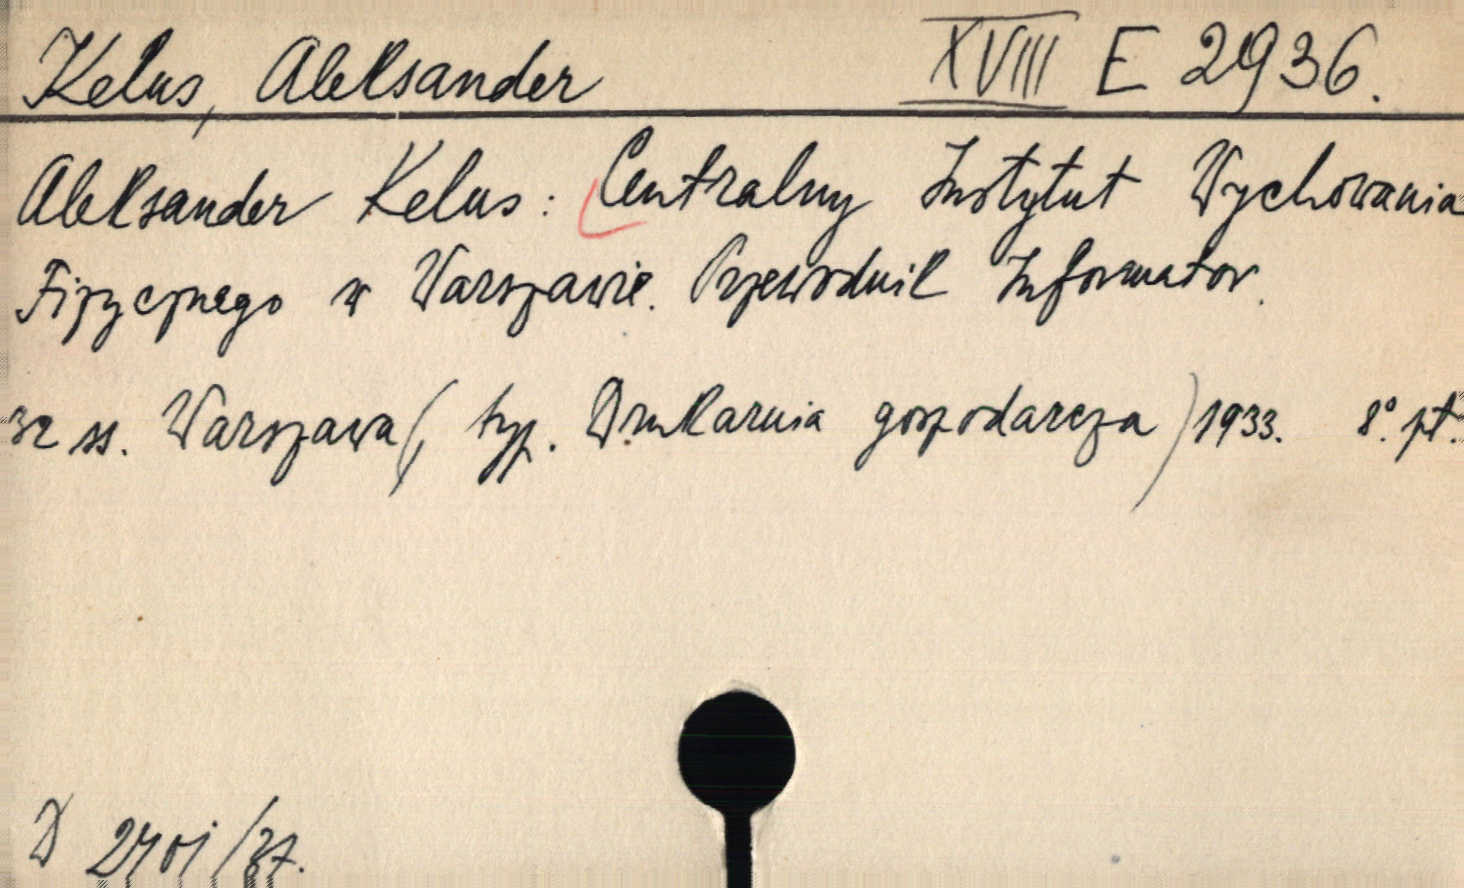 Kelus, Aleksander XVIII E 2936.
Aleksander Kelus: Centralny Instytut Wychowania
Fizycznego w Warszawie. Przewodnik Informator.
32 ss. Warszawa (typ. Drukarnia gospodarcza) 1933. 8°. pt.
D /37.